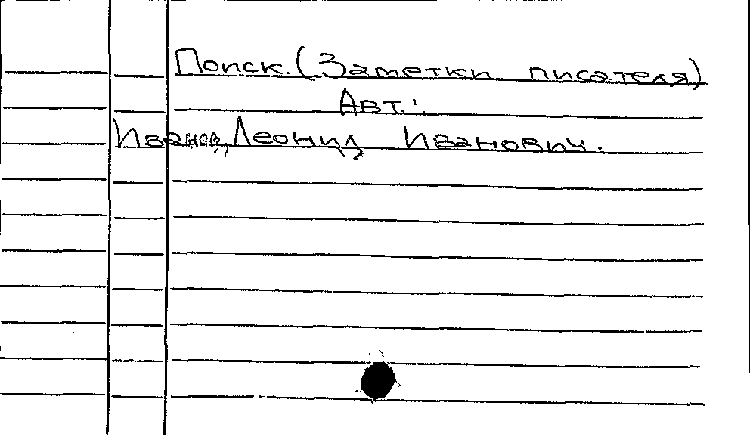 Поиск. (Заметки писателя)
Авт.:
Иванов, Леонид Иванович.